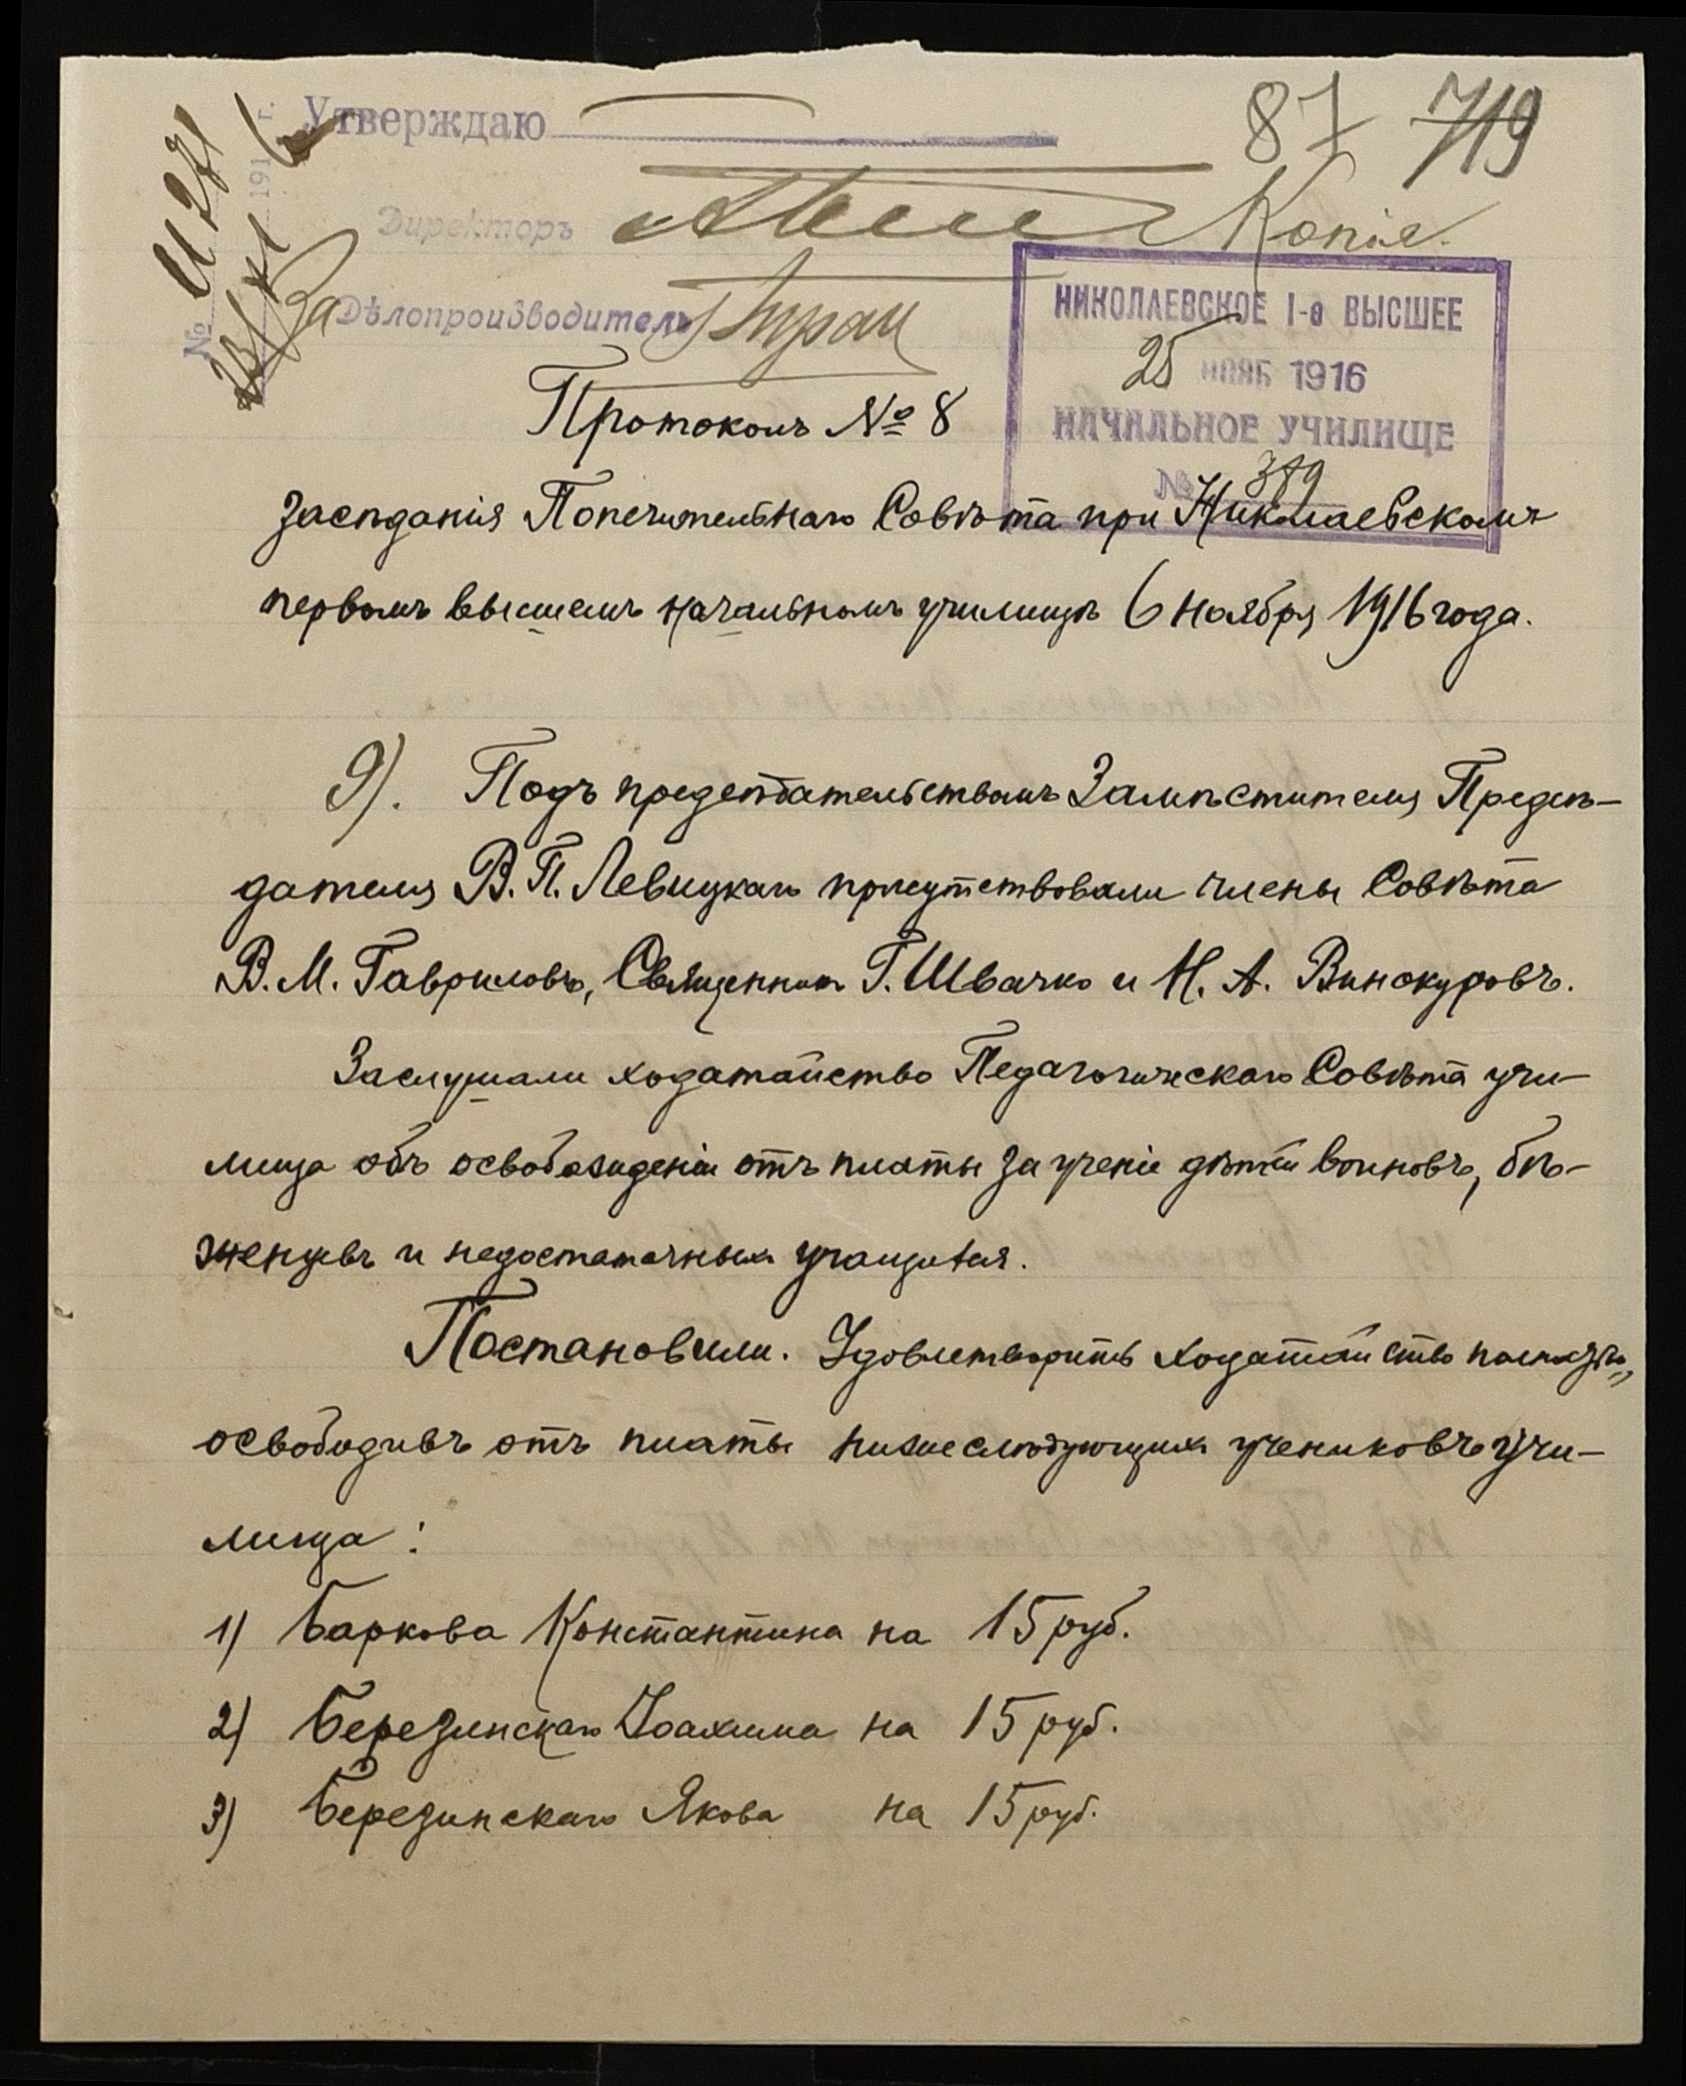 Утверждаю
87 719
Директоръ
Копія.
За Дѣлопроизводитель
НИКОЛАЕВСКОЕ I-е ВЫСШЕЕ
25 НОЯБ 1916
НАЧАЛЬНОЕ УЧИЛИЩЕ
№ 389
Протоколъ № 8
засѣданія Попечительнаго Совѣта при Николаевскомъ
первомъ высшемъ начальномъ училищѣ 6 ноября 1916 года.
9). Подъ предсѣдательствомъ Замѣстителя Предсѣ-
дателя В. П. Левицкаго присутствовали члены Совѣта
В. М. Гавриловъ, Священникъ Г. Швачко и Н. А. Винокуровъ.
Заслушали ходатайство Педагогическаго Совѣта учи-
лища объ освобожденіи отъ платы за ученіе дѣтей воиновъ, бѣ-
женцевъ и недостаточныхъ учащихся.
Постановили. Удовлетворить ходатайство
освободивъ отъ платы нижеслѣдующихъ учениковъ учи-
лища:
1) Баркова Константина на 15 руб.
2) Березинскаго Іоахима на 15 руб.
3) Березинскаго Якова на 15 руб.